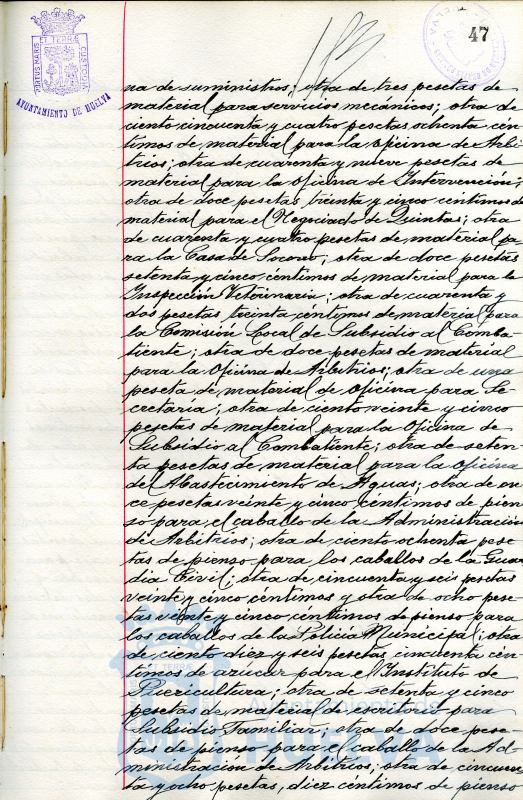 47
PORTUS MARIS ET TERRÆ CUSTODIA
AYUNTAMIENTO DE HUELVA
na de suministros; otra de tres pesetas de
material para servicios mecánicos; otra de
ciento cincuenta y cuatro pesetas ochenta cén-
timos de material para la oficina de Arbi-
trios; otra de cuarenta y nueve pesetas de
material para la oficina de Intervención;
otra de doce pesetas treinta y cinco céntimos de
material para el Negociado de Quintas; otra
de cuarenta y cuatro pesetas de material pa-
ra la Casa de Socorro; otra de doce pesetas
setenta y cinco céntimos de material para la
Inspección Veterinaria; otra de cuarenta y
dos pesetas treinta céntimos de material para
la Comisión Local de Subsidio al Comba-
tiente; otra de doce pesetas de material
para la Oficina de Arbitrios; otra de una
peseta de material de oficina para Se-
cretaria; otra de ciento veinte y cinco
pesetas de material para la Oficina de
Subsidio al Combatiente; otra de seten-
ta pesetas de material para la oficina
del Abastecimiento de Aguas; otra de on-
ce pesetas veinte y cinco céntimos de pien-
so para el caballo de la Administración
de Arbitrios; otra de ciento ochenta pese-
tas de pienso para los caballos de la Guar-
dia Civil; otra de cincuenta y seis pesetas
veinte y cinco céntimos y otra de ocho pese-
tas veinte y cinco céntimos de pienso para
los caballos de la Policía Municipal; otra
de ciento diez y seis pesetas cincuenta cén-
timos de azúcar para el Instituto de
Puericultura; otra de setenta y cinco
pesetas de material de escritorio para
Subsidio Familiar; otra de doce pese-
tas de pienso para el caballo de la Ad-
ministración de Arbitrios; otra de cincuen-
ta y ocho pesetas, diez céntimos de pienso
Ayuntamiento de
HUELVA